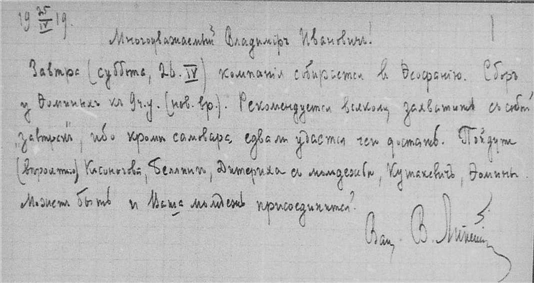 19 25/IV 19.
Многоуважаемый Владимiръ Ивановичъ!
Завтра (суббота, 26. IV) компанiя собирается в Феофанiю. Сборъ
у Фоминыхъ къ 9 ч. у. (нов. вр.). Рекомендуется всякому захватить съ собой
„завтракъ", ибо кроме самовара, едва ли удастся чего достать. Пойдутъ
(вероятно) Кисоногова, Беллинги, Дитерихса съ молодежью, Кушакевичъ, Фомины.
Можетъ быть и Ваша молодежь присоединится?
Ваш. В.